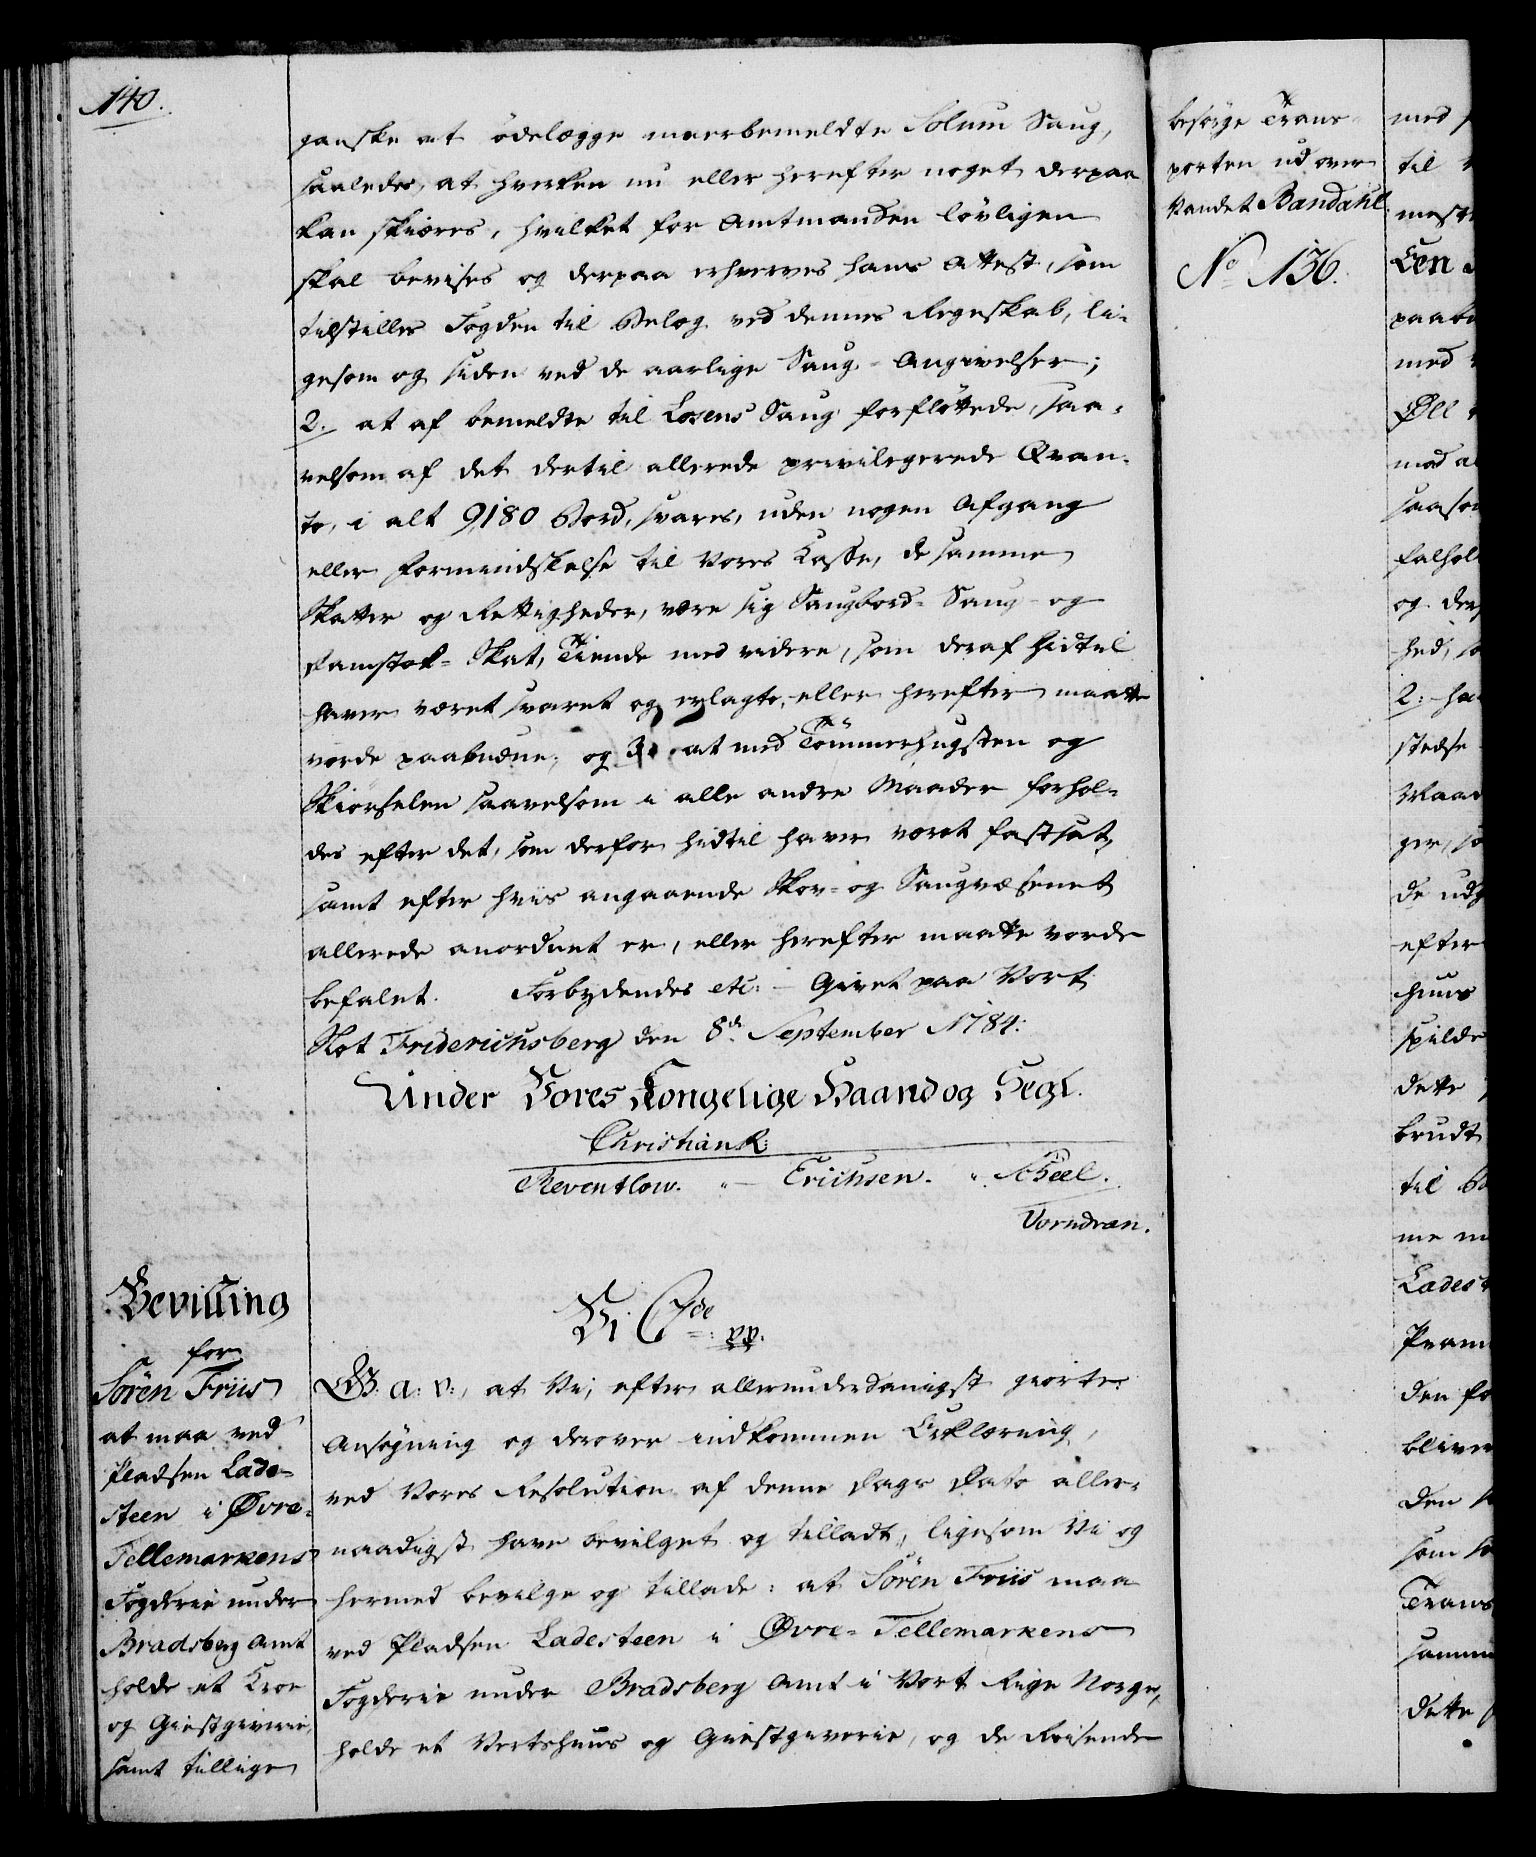 140.
ganske at ödelægge meerbemeldte Solum Saug,
saaledes, at hverken nu eller herefter noget derpaa
kan skiæres, hvilket for Amtmanden lovligen
skal bevises og derpaa erhverves hans Attest, som
tilstilles Fogden til Belæg ved dennes Regnskab, li-
gesom og siden ved de aarlige Saug-Angivelser;
2. at af bemeldte til Losens Saug forflöttede, saa-
velsom af det dertil allerede privilegerede Qvan-
to, i alt 9180 Bord, svares, uden nogen Afgang
eller Formindskelse til Vores Casse, de samme
Skatter og Rettigheder, være sig Saugbord- Saug- og
Damstok-Skat, Tiende med videre, som deraf hidtil
haver været svaret og erlagte, eller herefter maatte
vorde paabudne; og 3. at med Tömmerhugsten og
Skiörselen saavelsom i alle andre Maader forhol-
des efter det, som derfor hidtil haver været fastsat,
samt efter hvis angaaende Skov- og Saugvæsenet
allerede anordnet er, eller herefter maatte vorde
befalet. Forbydendes etc: - Givet paa Vort
Slot Friderichsberg den 8de September 1784:
Under Vores Kongelige Haand og Segl.
Christian R:
Reventlow. " - Erichsen. " Scheel.
Vorndran.
Bevilling
for
Sören Friis
at maa ved
Pladsen Lade-
steen i Øvre-
Tellemarkens
Fogderie under
Bradsberg Amt
holde et Kroe
og Giestgiverie,
samt tillige
Vi C 7de pp.
G. a: v:, at Vi, efter allerunderdanigst giorte
Ansögning og derover indkommen Erklæring,
ved Vores Resolution af denne Dags Dato aller-
naadigst have bevilget og tilladt, ligesom Vi og
hermed bevilge og tillade: at Sören Friis maa
ved Pladsen Ladesteen i Øvre-Tellemarkens
Fogderie under Bradsberg Amt i Vort Rige Norge,
holde et Vertshuus og Giestgiverie, og de Reisende
besörge Trans-
porten ud over
Vandet Bandahl
No 136.
med
til
mest
Een
paab
med
Øll
mod a
saaso
falhol
og der
hed, so
2: ha
stedse
Maad
ger, so
de udg
efter
huus
spilde
dette
brudt
til B
me m
Ladest
Pram
den fo
bliver
den
som so
Trans
samm
dette